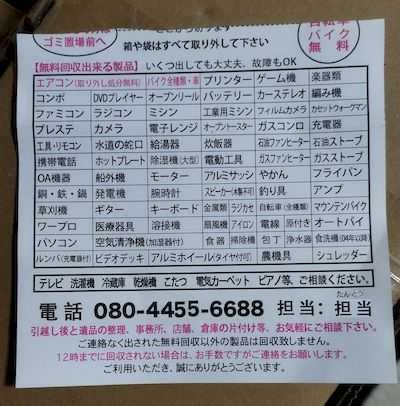 ゴミ置場前へ
箱や袋はすべて取り外して下さい
自転車
バイク
無料
【無料回収出来る製品】いくつ出しても大丈夫、故障もOK
エアコン(取り外し処分無料) バイク全種類・車 プリンター ゲーム機 楽器類
コンポ DVDプレイヤー オープンリール バッテリー カーステレオ 編み機
ファミコン ラジコン ミシン 工業用ミシン フィルムカメラ カセットウォークマン
プレステ カメラ 電子レンジ オーブントースター ガスコンロ 充電器
工具・リモコン 水道の蛇口 給湯器 炊飯器 石油ファンヒーター 石油ストーブ
携帯電話 ホットプレート 除湿機(大型) 電動工具 ガスファンヒーター ガスストーブ
OA機器 船外機 モーター アルミサッシ やかん フライパン
銅・鉄・鍋 発電機 腕時計 スピーカー(木製不可) 釣り具 アンプ
草刈機 ギター キーボード 金属類 ラジカセ 自転車(全種類) マウンテンバイク
ワープロ 医療器具 溶接機 扇風機 アイロン 電線 原付き オートバイ
パソコン 空気清浄機(加湿器付) 食器 掃除機 包丁 浄水器 食洗機(04年以降)
ルンバ(充電器付) ビデオデッキ アルミホイール(タイヤ付可) 農機具 シュレッダー
テレビ 洗濯機 冷蔵庫 乾燥機 こたつ 電気カーペット ピアノ等、ご相談ください。
電話 080-4455-6688 担当:担当
たんとう
引越し後と遺品の整理、事務所、店舗、倉庫の片付け等、お気軽にご相談下さい。
ご連絡なく出された無料回収以外の製品は回収致しません。
12時までに回収されない場合は、お手数ですがご連絡をお願いします。
ご利用いただき、誠にありがとうございます。